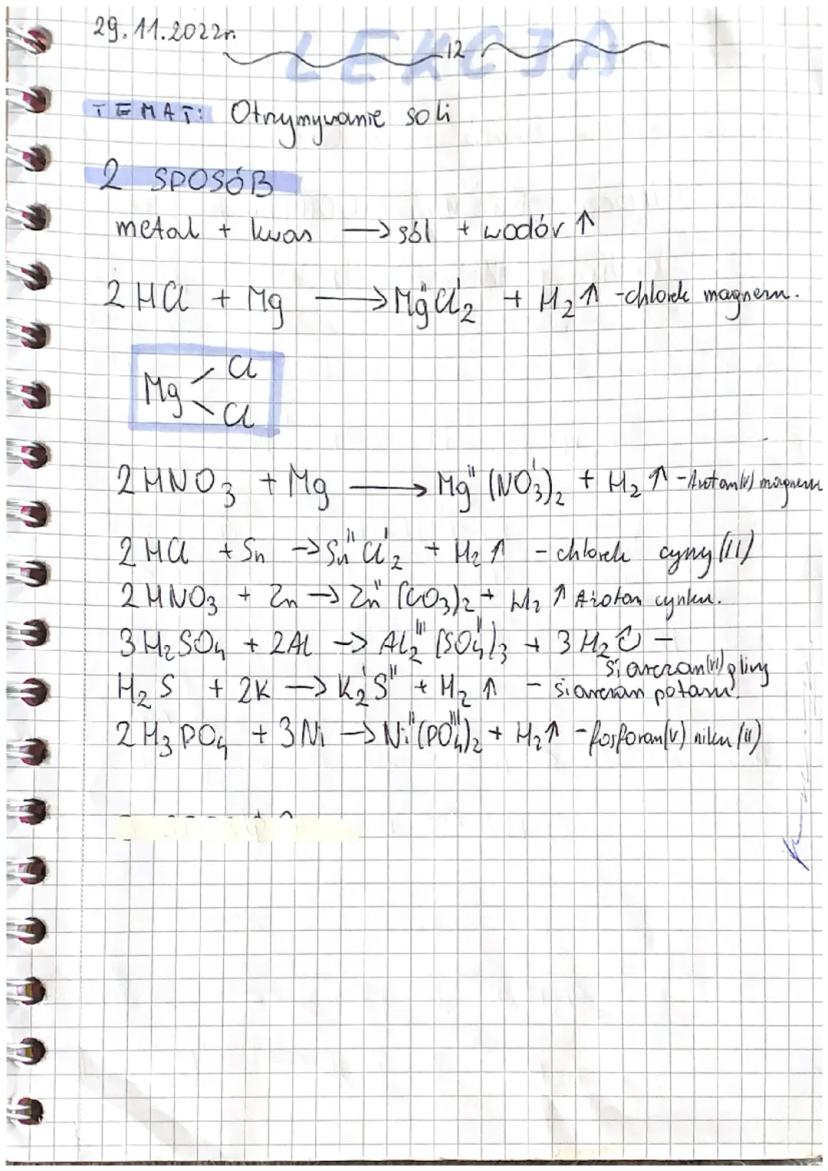 29.11.2022r.
LEKCJA 12
TEMAT: Otrzymywanie soli
2 SPOSÓB
metal + kwas → sól + wodór ↑
2HCl + Mg → MgᴵᴵClᴵ₂ + H₂↑ - chlorek magnezu.
Mg < Cl
Cl
2HNO₃ + Mg → Mgᴵᴵ(NO₃)ᴵ₂ + H₂↑ - Azotan(V) magnezu
2HCl + Sn → SnᴵᴵClᴵ₂ + H₂↑ - chlorek cyny (II)
2HNO₃ + Zn → Znᴵᴵ(CO₃)₂ + H₂↑ Azotan cynku.
3H₂SO₄ + 2Al → Al₂ᴵᴵᴵ(SO₄)ᴵᴵ₃ + 3H₂ -
siarczan(VI) gliny
H₂S + 2K → K₂ᴵSᴵᴵ + H₂↑ - siarczan potasu.
2H₃PO₄ + 3Ni → Niᴵᴵ(PO₄)ᴵᴵᴵ₂ + H₂↑ - fosforan(V) niklu (II)